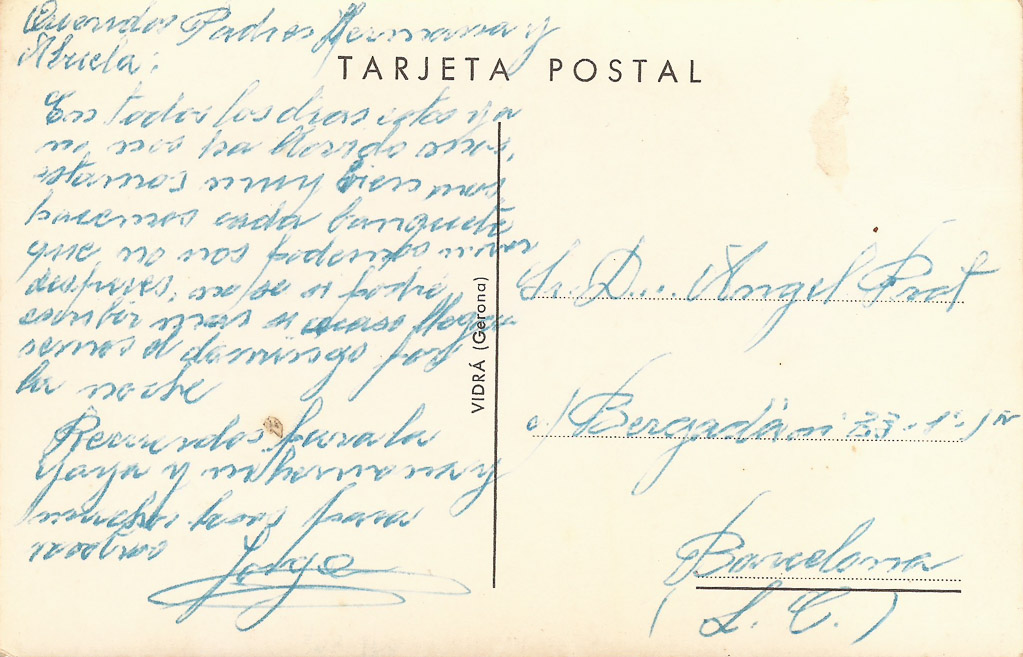 Queridos Padres Hermana y
Abuela:
TARJETA POSTAL
En todos los dias estos ya
no nos ha llovido mas,
estamos muy bien nos
hacemos cada banquete
que no nos podemos mover
despues, no se si podre
escribir mas si acaso llega
semos el domingo por
la noche
Recuerdos para la
Yaya y mi hermana y
muchos besos para
vosotros
Jorge
VIDRÁ (Gerona)
Sr. D... Angel Prat
c/ Bergadán 33-1º-
Barcelona
(S. C.)